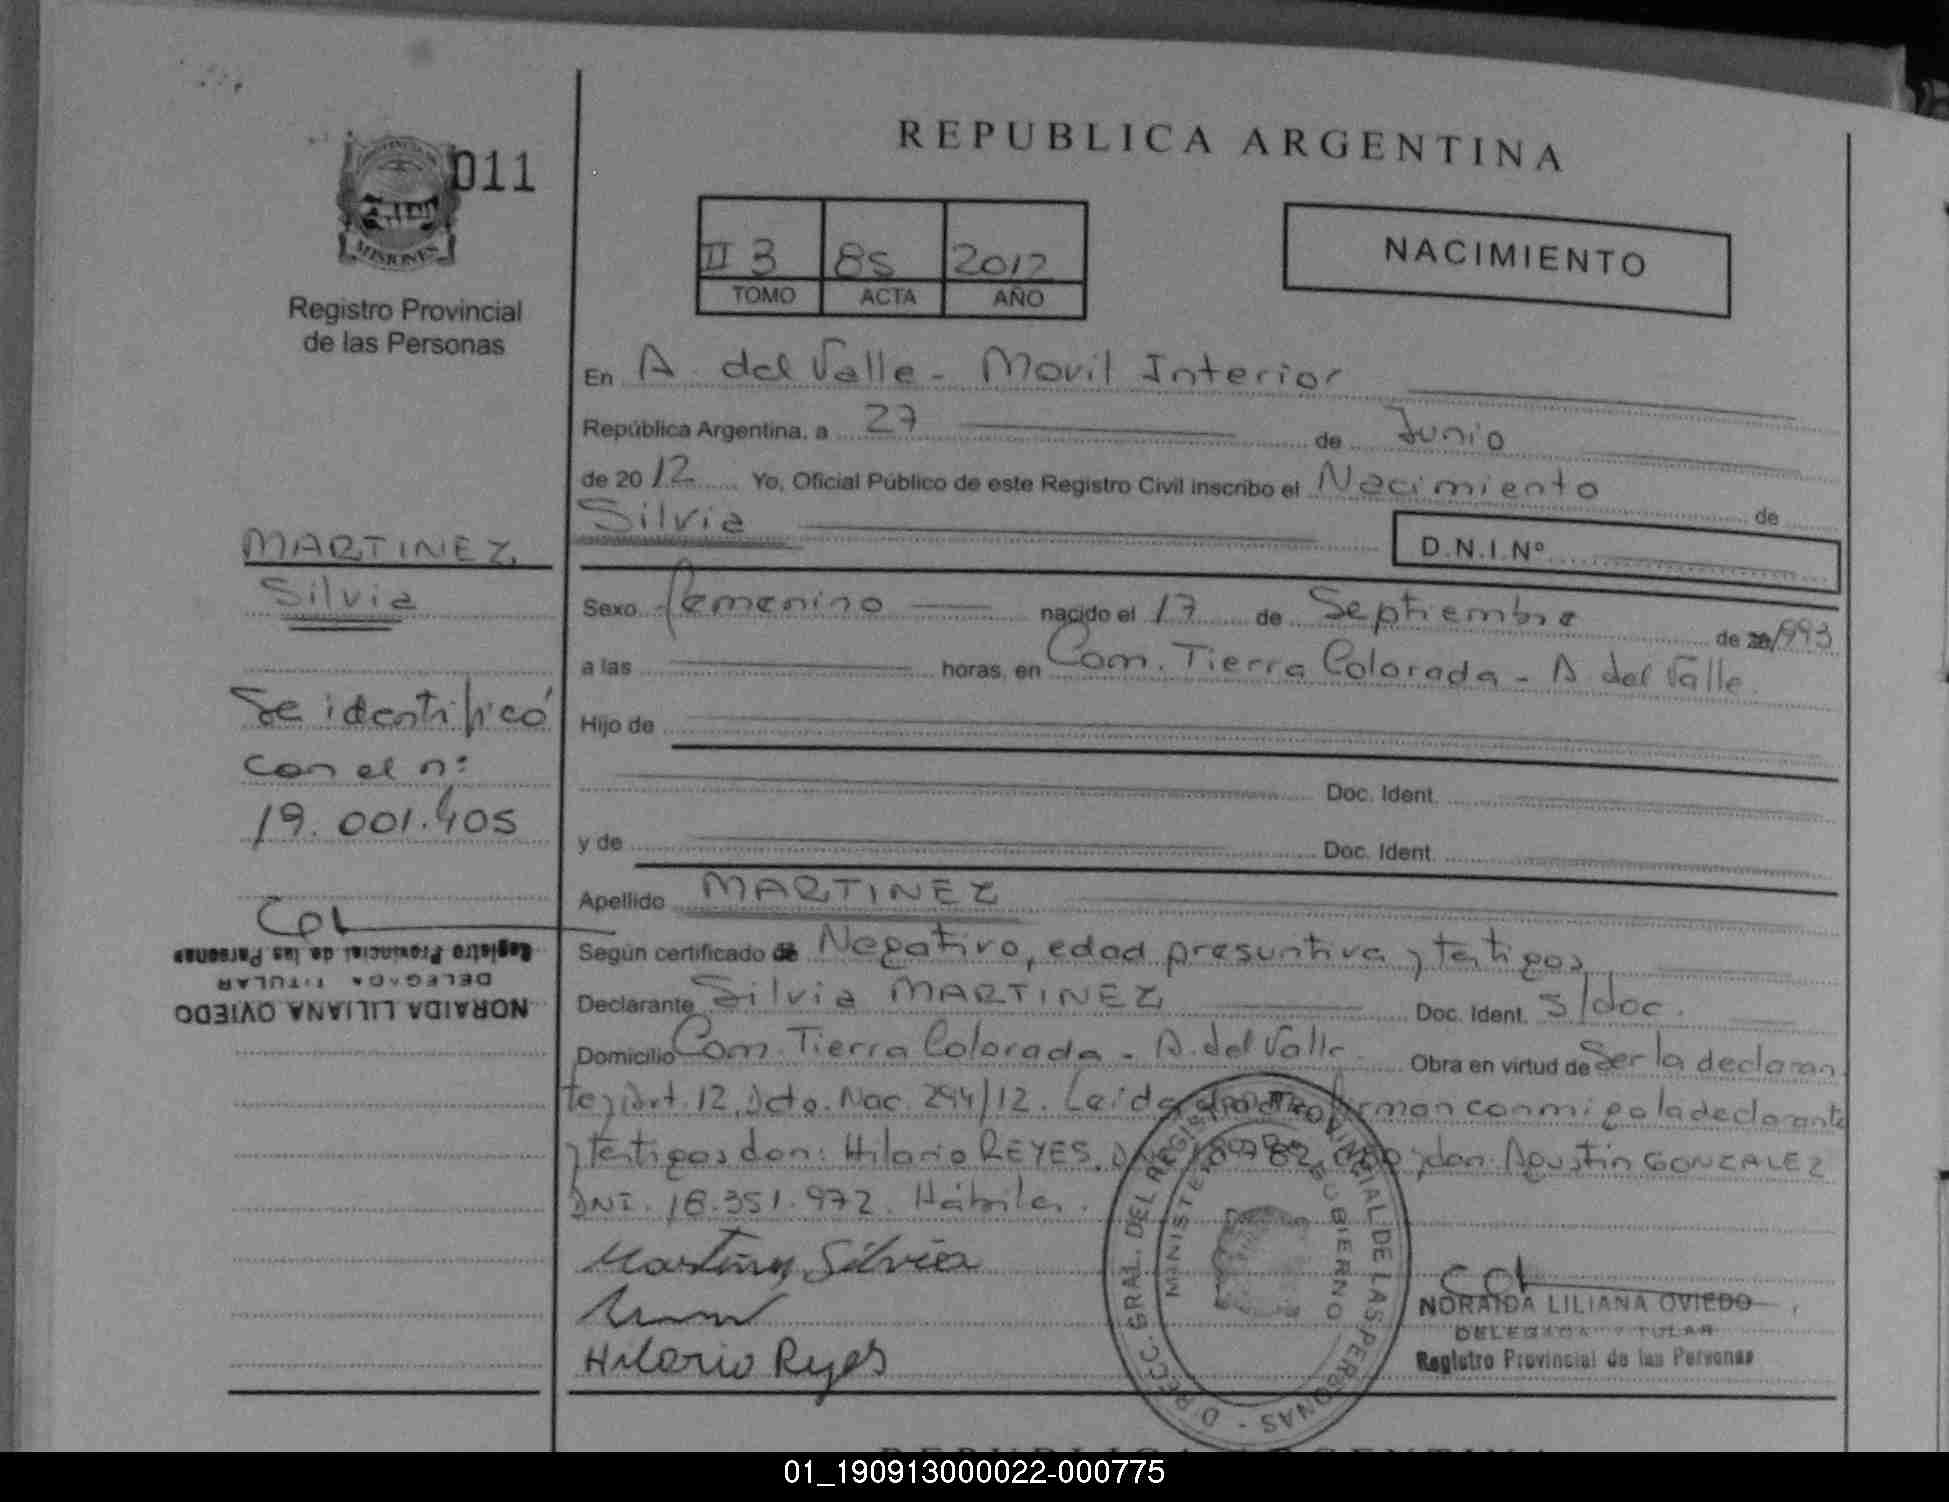 REPUBLICA ARGENTINA
PROVINCIA DE
MISIONES
011
Registro Provincial
de las Personas
II 3 85 2012
TOMO ACTA AÑO
NACIMIENTO
En A. del Valle - Movil Interior
República Argentina, a 27 de Junio
de 2012 Yo, Oficial Público de este Registro Civil inscribo el Nacimiento de
Silvia
D.N.I.Nº
Sexo femenino nacido el 17 de Septiembre de 1993
a las horas, en Com. Tierra Colorada - A. del Valle.
Hijo de
Doc. Ident.
y de Doc. Ident.
Apellido MARTINEZ
Según certificado de Negativo, edad presuntiva y testigos
Declarante Silvia MARTINEZ Doc. Ident. S/doc.
Domicilio Com. Tierra Colorada - A. del Valle. Obra en virtud de Ser la declaran
te y Art. 12, Dcto. Nac. 294/12. Leida el acta firman conmigo la declarante
y testigos don: Hilario REYES, y don Agustin GONZALEZ
DNI. 18.351.972. Hábiles.
Martinez Silvia
Hilario Reyes
DIRECC. GRAL. DEL REGISTRO PROVINCIAL DE LAS PERSONAS -
MINISTERIO DE GOBIERNO
NORAIDA LILIANA OVIEDO
DELEGADA TITULAR
Registro Provincial de las Personas
MARTINEZ,
Silvia
Se identificó
con el nº
19.001.405
Registro Provincial de las Personas
DELEGADA TITULAR
NORAIDA LILIANA OVIEDO
REPUBLICA ARGENTINA
01_190913000022-000775